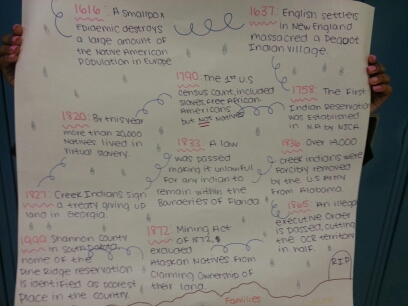 1616: A Smallpox
Epidemic destroys
a large amount of
the Native American
Population in Europe
1637: English settlers
in New England
massacred a Pequot
Indian village.
1790: The 1st U.S
census count, included
slaves, free African
Americans
but NOT Natives
1758: The First
Indian Reservation
was Established
in N.A by NJCA.
1820: By this year
more than 20,000
Natives lived in
Virtual slavery.
1833: A law
was passed
making it unlawful
for any indian to
remain within the
Boundries of Florida
1836: Over 14,000
creek indians were
forcibly removed
by the U.S Army
From Alabama.
1827: Creek Indians sign
a treaty giving up
land in Georgia.
1865: An illegal
executive Order
is Passed, cutting
the OCR territory
in half.
1999: Shannon county
in south Dakota
home of the
Pine Ridge reservation
is identified as poorest
place in the country.
1872: Mining Act
of 1872,
excluded
Alaskan Natives From
Claiming Ownership of
their land.
R.I.P
Families